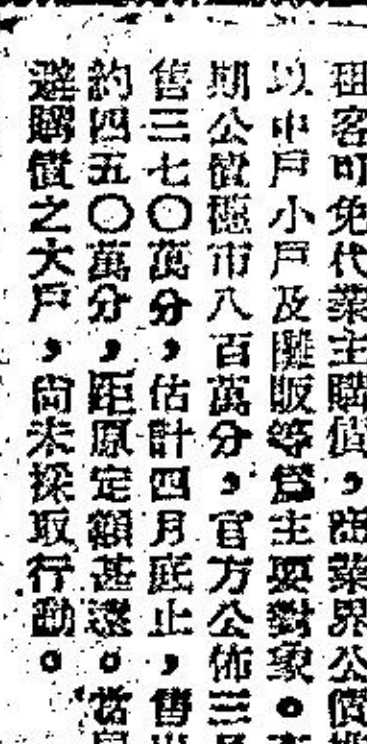 租客可免代業主購債，商業界公債
以中戶小戶及攤販等爲主要對象。
期公債穗市八百萬分，官方公佈三月
售三七〇萬分，估計四月底止，售出
約四五〇萬分，距原定額甚遠。當局
避購債之大戶，尚未採取行動。